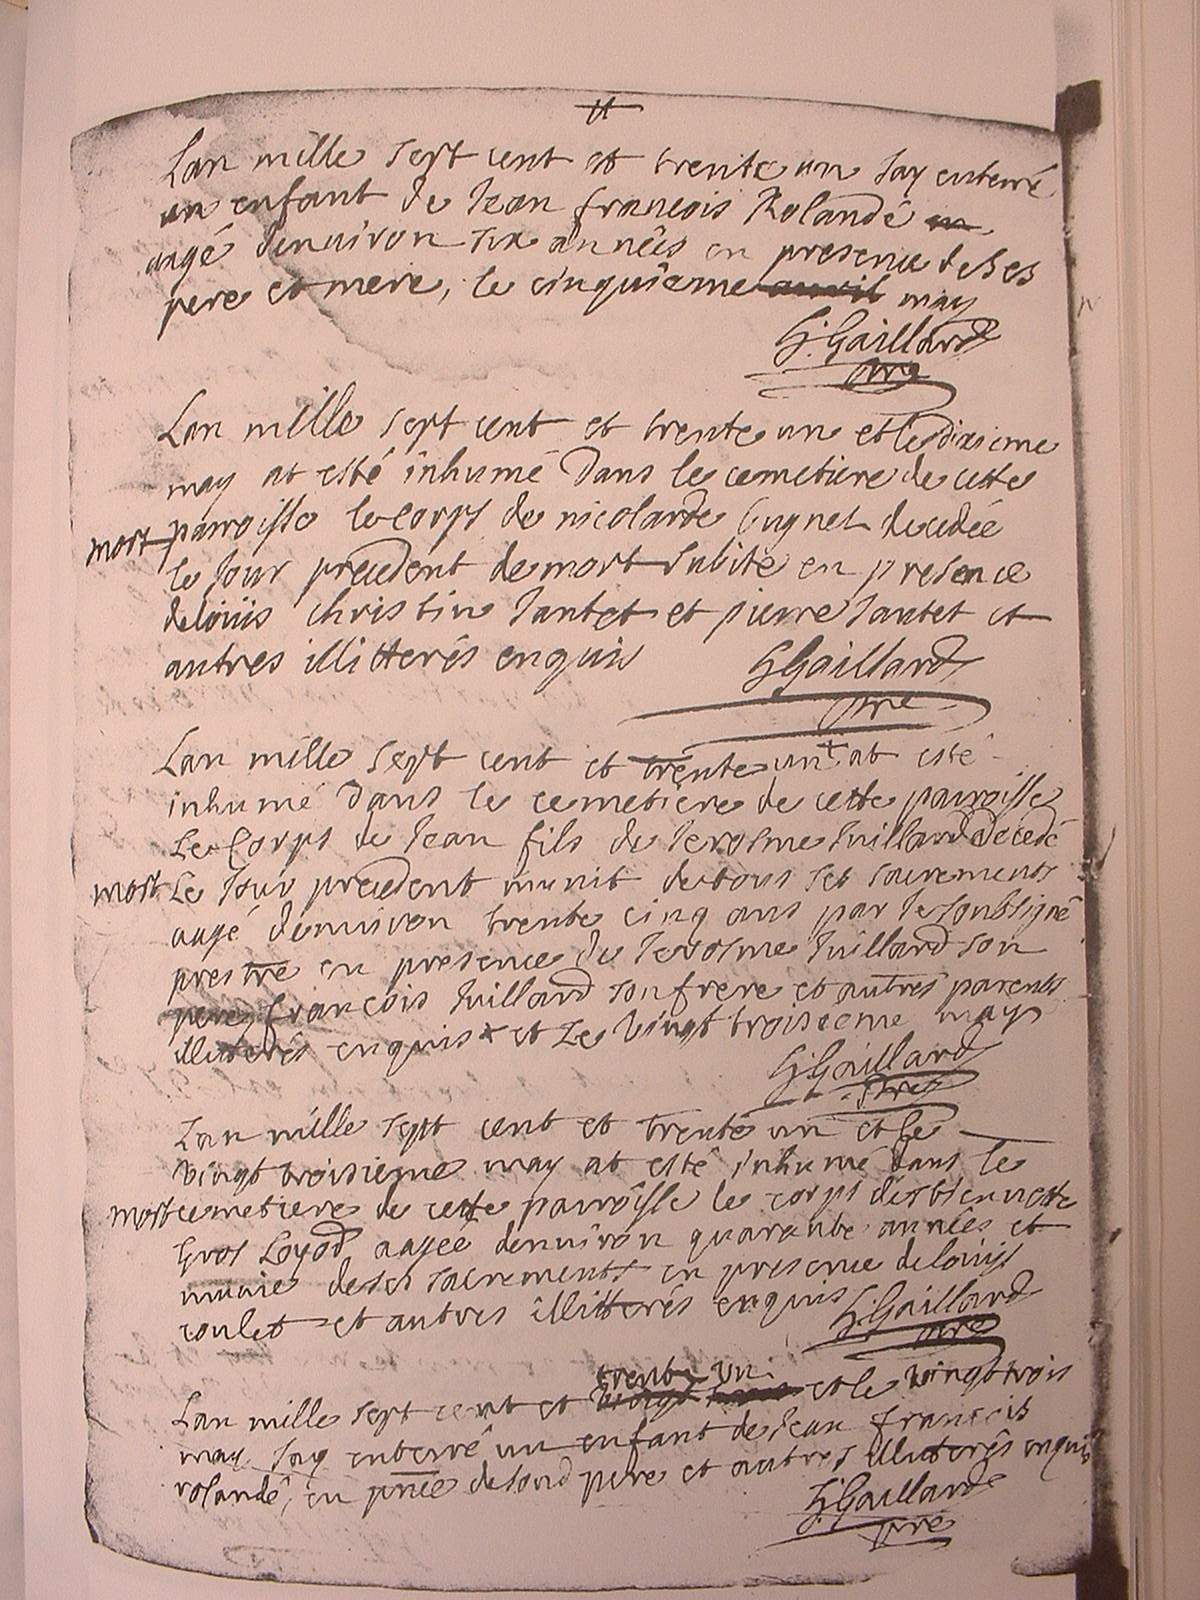 Lan mille sept cent et trente un Jay enterré
un enfant de Jean francois Rolandé
aagé denuiron six années en presence de ses
pere et mere, le cinquiéme auril may
G: Gaillard
pre
Lan mille sept cent et trente un et le dixieme
may at esté inhumé dans le cemetiere de cette
parroisse le Corps de nicolarde Cugnet decedée
mort
le Jour precedent de mort Subite en presence
de loüis christin Jantet et pierre Jantet et
autres illitterés enquis
G Gaillard
pre
Lan mille sept cent et trente un + at esté
inhumé dans le cemetiere de cette parroisse
Le Corps de Jean fils de Jerosme Juillard decedé
mort Le Jour precedent munit de tous ses sacrements
aagé denuiron trente cinq ans par le soubsigné
prestre en presence de Jerosme Juillard son
pere françois Juillard son frere et autres parents
illiterés enquis + et Le vingt troisieme may
G: Gaillard
pre
Lan mille sept cent et trente un et le
vingt troisieme may at esté inhumé dans le
mort cemetiere de cette parroisse le corps destiennette
Gros Loyod aagée denuiron quarante années et
munie de ses sacrements en presence de loüis
coulet et autres illitterés enquis G: Gaillard
pre
trente un
Lan mille sept cent et vingt et le vingt trois
may Jay enterré un enfant de Jean francois
rolandé, en pnce de sond pere et autres illiterés enquis
G: Gaillard
pre